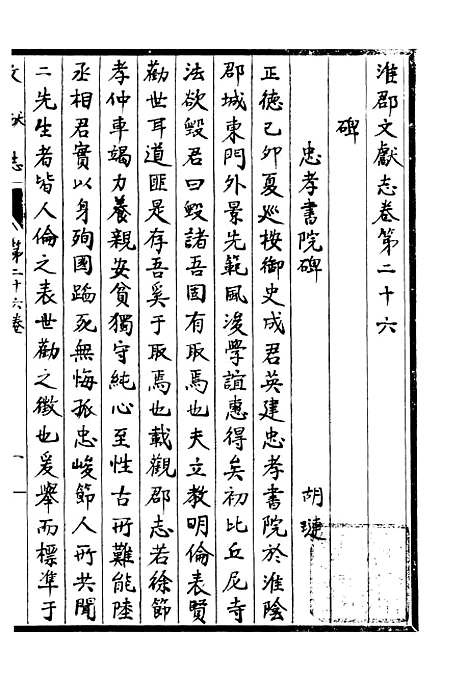 淮郡文獻志卷第二十六
碑
忠孝書院碑　胡璉
正德己卯夏巡按御史成君英建忠孝書院於淮陰
郡城東門外景先範風後學誼惠得矣初比丘尼寺
法欲毀君曰毀諸吾固有取焉也夫立教明倫表賢
勸世耳道匪是存吾奚于取焉也載觀郡志若徐節
孝仲車竭力養親安貧獨守純心至性古所難能陸
丞相君實以身殉國蹈死無悔孤忠峻節人所共聞
二先生者皆人倫之表世勸之徵也爰舉而標準于
文獻志　第二十六卷　一